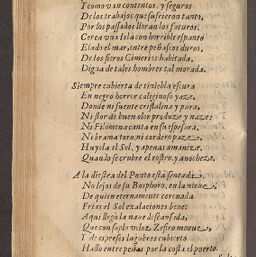 Y como van contentos, y seguros
De los trabajos que sufrieron tanto,
Por los passados lloran los futuros:
Cerca vna Isla con horrible espanto
Elado el mar, entre peñascos duros,
De los fieros Cimerios habitada,
Digna de tales hombres tal morada.
Siempre cubierta de tiniebla escura
En negro horror caliginoso yaze,
Donde ni fuente cristalina y pura,
Ni flor de buen olor produze y naze:
Ni Filomena canta en su espesura,
Ni brama toro, ni cordero paze,
Huyela el Sol, y apenas amanece,
Quando se cubre el rostro, y anochece.
A la diestra del Ponto está sentada
No lejos de su Bosphoro, en la nieue,
De quien eternamente coronada
Frias el Sol exalaciones beue:
Aqui llegò la naue descansada,
Que con soplo veloz Zefiro mueue,
Y de cipreses lugubres cubierto
Hallò entre peñas por la costa el puerto.